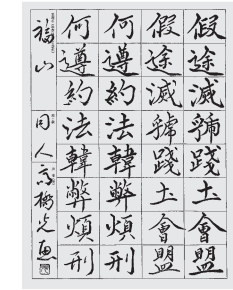 假途滅虢踐土會盟
假途滅虢踐土會盟
何遵約法韓弊煩刑
何遵約法韓弊煩刑
福山 同人 高橋